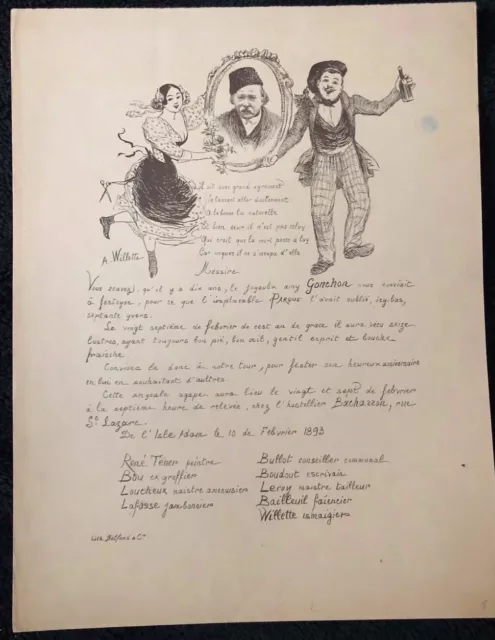 A. Willette
Il est sans grand agrement
De la bonne loy naturelle
Et bien seur il n'est pas celuy
Qui croit que la mort pense à luy
Car oncques il ne s'occupa d'elle
Messire,
Vous scavez, qu'il y a dix ans, le joyeulx amy Gonchon nous conviait
à festoyer, pour ce que l'implacable PARQUE l'avait oublié, icy-bas,
septante yvers.
Le vingt septième de febvrier de cest an de grace il aura vécu seize
lustres, ayant toujours bon pié, bon œil, gentil esprit et bouche
fraische.
Convions le donc à notre tour, pour fester son heureux anniversaire
en lui en souhaitant d'autres.
Cette agape aura lieu le vingt et sept de febvrier
à la septième heure de relevée, chez l'hostellier Bacharzon, rue
St Lazare.
De l'Isle Adam le 10 de Febvrier 1893
René Tener peintre
Bou ex greffier
Loucheux maistre
Lafosse jambonnier
Bullot conseiller communal
Boudout escrivain
Leroy maistre tailleur
Bailleuil faïencier
Willette ismaigier
Lith. Belfond & Cie